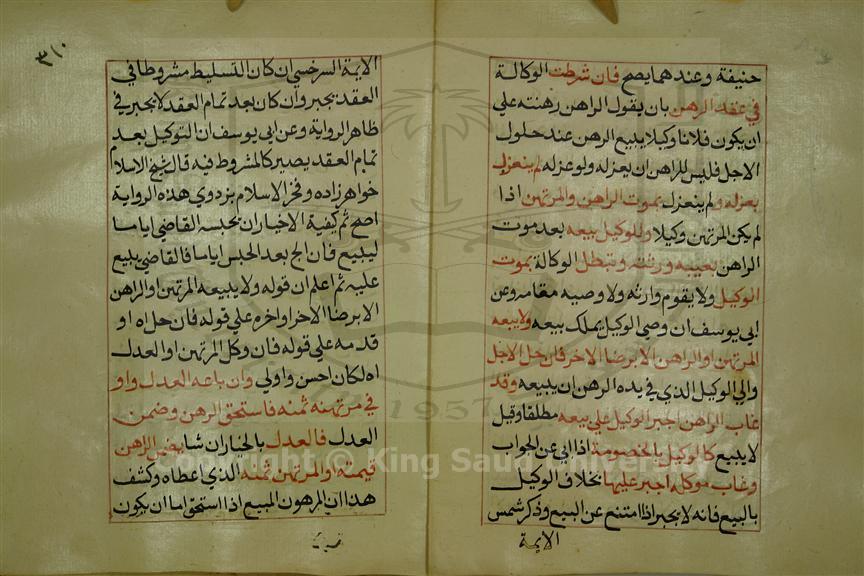 حنيفة وعندهما يصح فان شرطت الوكالة
في عقد الرهن بان يقول الراهن رهنته علي
ان يكون فلانا وكيلا يبيع الرهن عند حلول
الاجل فليس للراهن ان يعزله ولو عزله لم ينعزل
بعزله ولم ينعزل بموت الراهن والمرتهن اذا
لم يكن المرتهن وكيلا وللوكيل بيعه بعد موت
الراهن بغيبة ورثته وتبطل الوكالة بموت
الوكيل ولا يقوم وارثه ولا وصيه مقامه وعن
ابي يوسف ان وصي الوكيل يملك بيعه ولا يبيعه
المرتهن او الراهن الا برضا الاخر فان حل الاجل
والي الوكيل الذي في يده الرهن ان يبيعه وقد
غاب الراهن اجبر الوكيل علي بيعه مطلقا وقيل
لا يبيع كالوكيل بالخصومة اذا ابي عن الجواب
وغاب موكله اجبر عليها بخلاف الوكيل
بالبيع فانه لا يجبر اذا امتنع عن البيع وذكر شمس
الايمة
٣١٠
الايمة السرخسي ان كان التسليط مشروطا في
العقد يجبر وان كان بعد تمام العقد لا يجبر في
ظاهر الرواية وعن ابي يوسف ان التوكيل بعد
تمام العقد يصير كالمشروط فيه قال شيخ الاسلام
خواهر زاده وفخر الاسلام بزدوي هذه الرواية
اصح ثم كيفية الاخبار ان يحبسه القاضي اياما
ليبيع فان الح بعد الحبس اياما فالقاضي يبيع
عليه ثم اعلم ان قوله ولا يبيعه المرتهن او الراهن
الا برضا الاخر لو اخره علي قوله فان حل اه او
قدمه علي قوله فان وكل المرتهن او العدل
اه لكان احسن واولي وان باعه العدل واو
في مرتهنه ثمنه فاستحق الرهن وضمن
العدل فالعدل بالخيار ان شا يضمن الراهن
قيمته او المرتهن ثمنه الذي اعطاه وكشف
هذا ان المرهون المبيع اذا استحق اما ان يكون
Copyright © King Saud University
1957